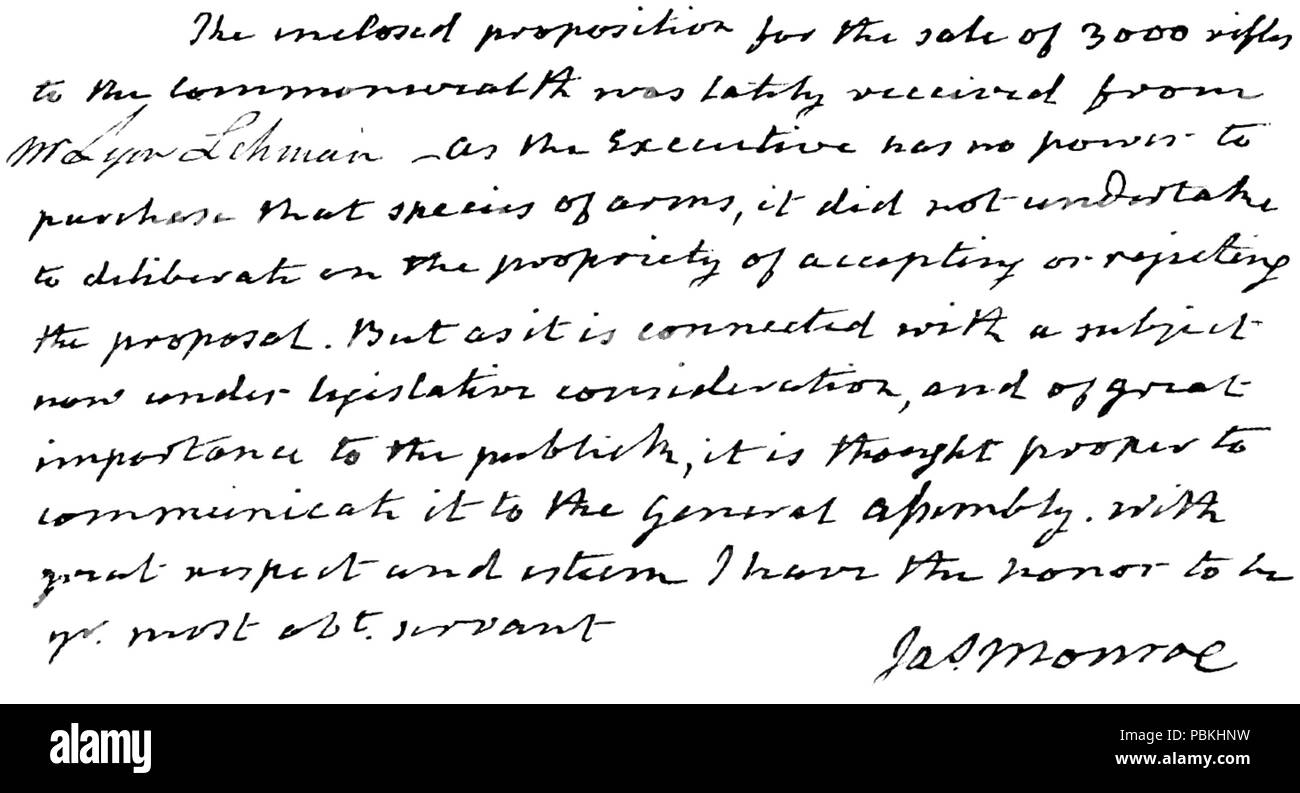 The inclosed proposition for the sale of 3000 rifles
to the commonwealth was lately received from
Mr Lyon Lehman - as the Executive has no power to
purchase that species of arms, it did not undertake
to deliberate on the propriety of accepting or rejecting
the proposal. But as it is connected with a subject
now under legislative consideration, and of great
importance to the publick, it is thought proper to
communicate it to the General assembly. with
great respect and esteem I have the honor to be
yr. most obt. servant
Jas. Monroe
alamy
Image ID: PBKHNW
www.alamy.com